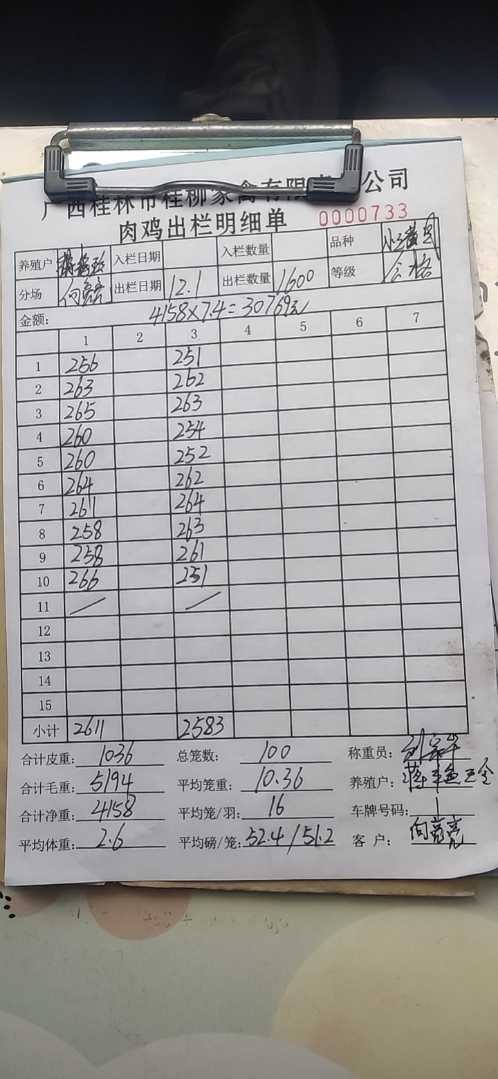 广西桂林市桂柳家禽有限责任公司
肉鸡出栏明细单 0000733
养殖户 入栏日期 入栏数量 品种
分场 向亮亮 出栏日期 12.1 出栏数量 1600 等级 合格
金额: 4158×7.4=30769元
1 2 3 4 5 6 7
1 256 251
2 263 262
3 265 263
4 260 254
5 260 252
6 264 262
7 261 264
8 258 263
9 258 261
10 266 251
11
12
13
14
15
小计 2611 2583
合计皮重: 1036 总笼数: 100 称重员:
合计毛重: 5194 平均笼重: 10.36 养殖户:
合计净重: 4158 平均笼/羽: 16 车牌号码:
平均体重: 2.6 平均磅/笼: 52.4/51.2 客户: 向亮亮